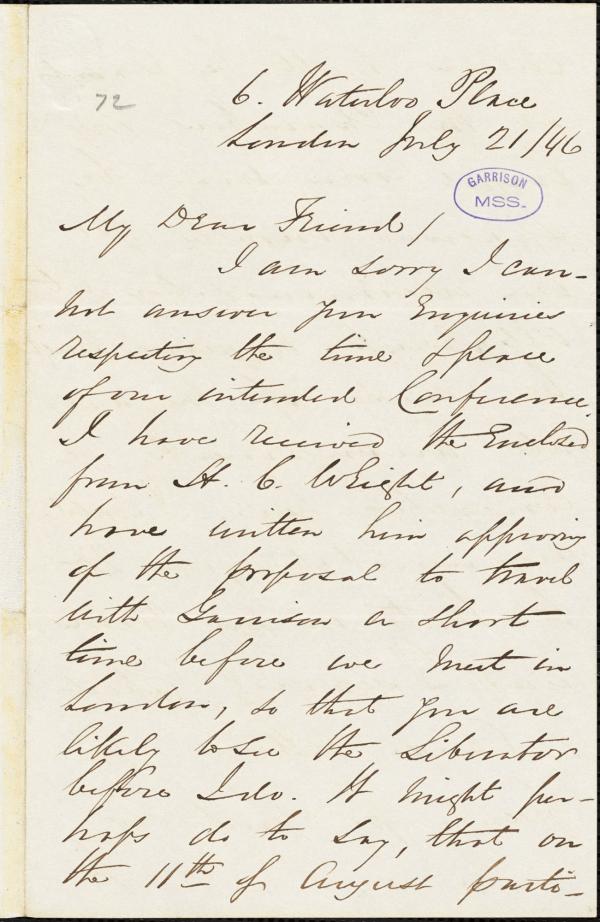 72
6. Waterloo Place
London July 21/46
GARRISON
MSS.
My Dear Friend/
I am sorry I can-
not answer your Enquiries
respecting the time & place
of our intended Conference.
I have received the Enclosed
from H. C. Wright, and
have written him approving
of the proposal to travel
with Garrison a short
time before we meet in
London, so that you are
likely to see the Liberator
before I do. It might per-
haps do to say, that on
the 11th of August parti-